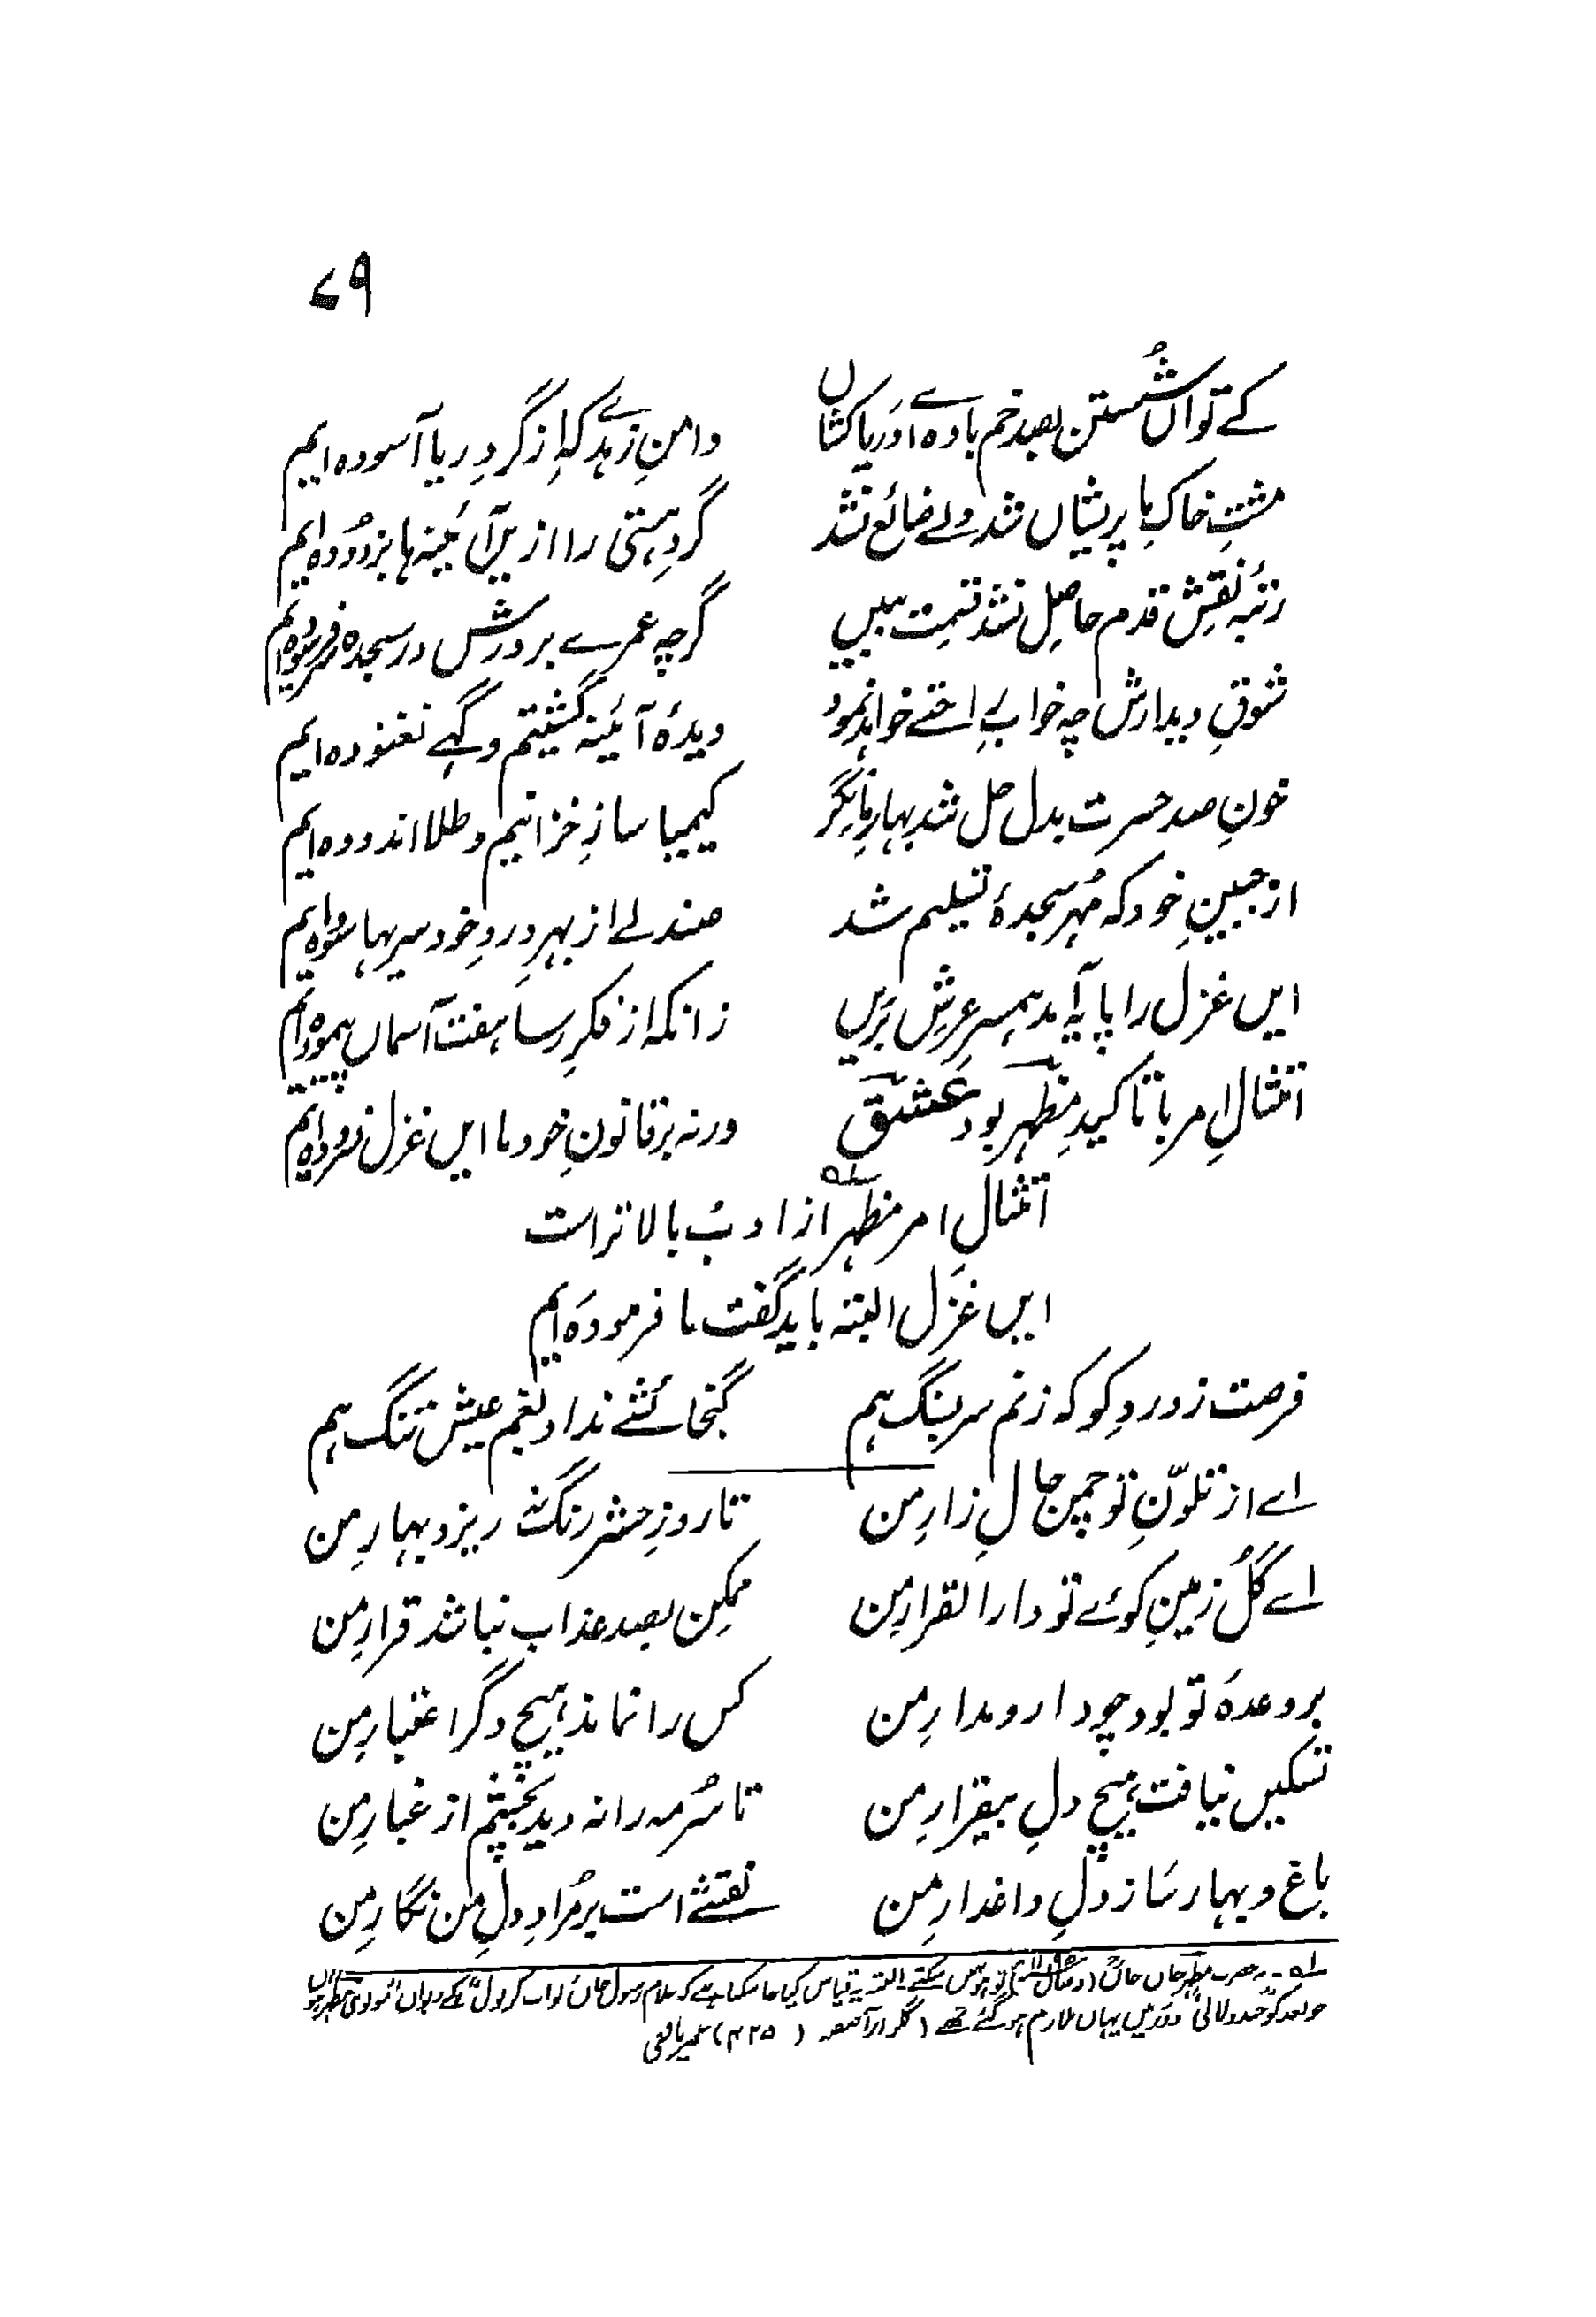 ۷۹
کے تواں شُستن بصد خم بادہ اے دریا کشاں دامنِ زہدے کہ از گردِ ریا آسودہ ایم
مشتِ خاکِ ما پریشاں شد ولے ضائع نشد گردِ ہستی را ازیں آئینہا بزدُودہ ایم
رتبۂ نقشِ قدم حاصِل نشد قسمت ببیں گرچہ عمرے بر درش در سجدہ فرسودہ ایم
شوقِ دیدارش چہ خوابِ راحتے خواہد نمود دیدۂ آئینہ گشیتم و گہے نغنودہ ایم
خونِ صد حسرت بدل حل شد بہارِ ما نگر کیمیا سازِ خزانیم و طلا اندودہ ایم
از جبینِ خود کہ مُہرِ سجدۂ تسلیم شد صندلے از بہرِ دردِ خود سریہا سودہ ایم
ایں غزل را پایہ آمد ہمسرِ عرشِ بَریں زانکہ از فکرِ رسا ہفت آسماں پیمودہ ایم
امتثالِ امر با تاکیدِ مظہر بود عَشق ورنہ بر قانونِ خود ما ایں غزل نسرودہ ایم
امتثالِ امر مظہر از ادب بالاتر است
ایں غزل البتہ باید گفت ما فرمودہ ایم
فرصت ز دردِ کو کہ زنم سر بسنگ ہم گنجائشے نداد بغم عیش تنگ ہم
اے از تلوّنِ تو چمن حالِ زارِ من تا روزِ حشر رنگ نہ ریزد بہارِ من
اے گُل زمینِ کوئے تو دارالقرارِ من ممکِن بصد عذاب نباشد قرارِ من
بر وعدۂ تو بود چو دار و مدارِ من کس را نماند ہیچ دگر اعتبارِ من
تسکیں نیافت ہیچ دلِ بیقرارِ من تا سُرمہ را نہ دید بچشم از غبارِ من
باغ و بہار سَاز دلِ داغدارِ من نقشے است بر مُرادِ دلِ من نگارِ من
لہ۔ یہ حضرت مظہر جان جاناں (وصال ۱۱۹۵ھ) تو ہو نہیں سکتے۔ البتہ یہ قیاس کیا جا سکتا ہے کہ غلام رسول خاں نواب کرنول کے دیوان مودی مظہر ہوں
جو بعد کو چندولالی دور میں یہاں ملازم ہو گئے تھے (گلزار آصفیہ (۴۲۵)